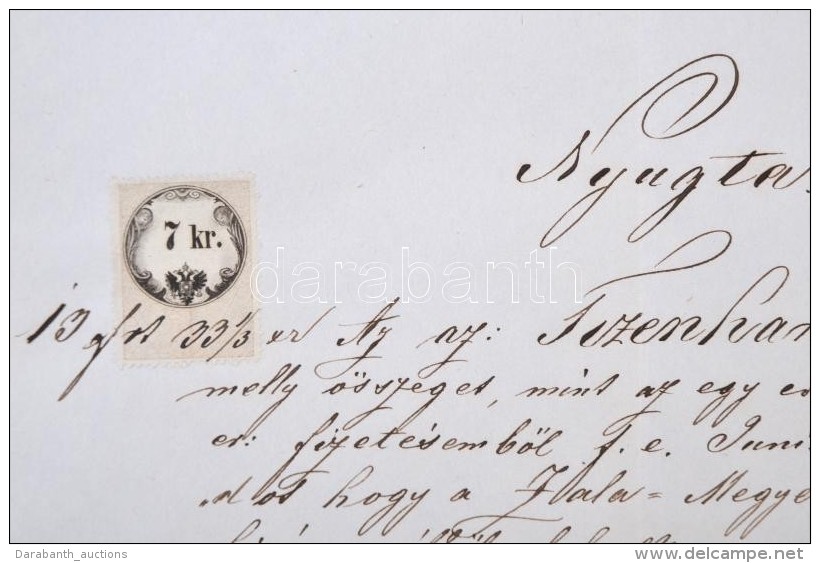 Nyugta
7 kr.
darabanth
13 frt 33 1/3 xr Az az: Tizenhár
melly összeget, mint az egy
er: fizetésemből f. e. Juni
hogy a Zala=Megye
Darabanth_auctions
www.delcampe.net